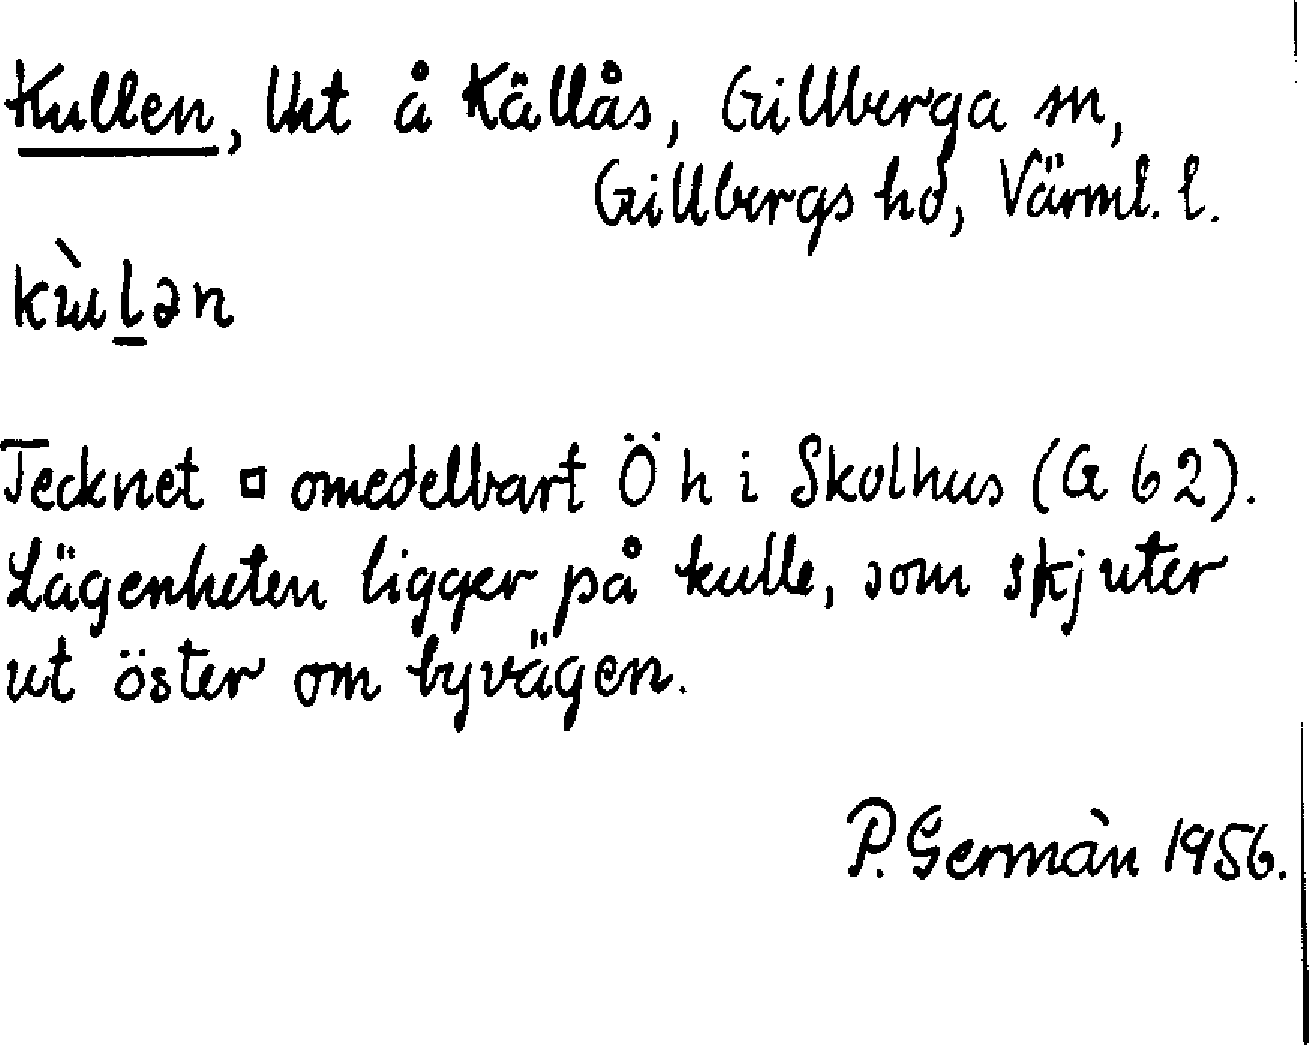 Kullen, lht å Källås, Gillberga sn,
Gillbergs hd, Värml. l.
kɯ̀l̠ən
Tecknet ¤ omedelbart Ö h i Skolhus (G 62).
Lägenheten ligger på kulle, som skjuter
ut öster om byvägen.
P. Germàn 1956.